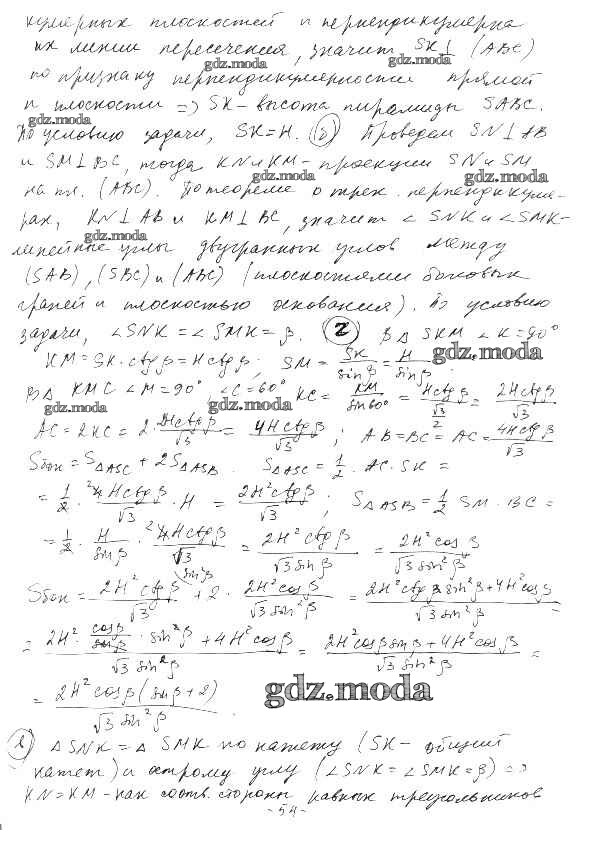 кулярных плоскостей и перпендикулярна
их линии пересечения, значит SK⊥ (ABC)
gdz.moda
gdz.moda
по признаку перпендикулярности прямой
и плоскости => SK-высота пирамиды SABC.
gdz.moda
По условию задачи, SK=H. б) Проведем SN⊥AB
и SM⊥BC, тогда KN и KM-проекции SN и SM
gdz.moda
gdz.moda
на пл. (ABC). По теореме о трех перпендикуля-
рах, KN⊥AB и KM⊥BC, значит ∠SNK и ∠SMK-
gdz.moda
линейные углы двугранных углов между
(SAB), (SBC) и (ABC) (плоскостями боковых
граней и плоскостью основания). По условию
задачи, ∠SNK = ∠SMK = β. 2 В Δ SKM ∠K=90°
KM = SK·ctgβ = Hctgβ; SM = SK/sinβ = H/sinβ.
gdz.moda
В Δ KMC ∠M=90° ∠C=60° KC = KM/sin60° = Hctgβ/(√3/2) = 2Hctgβ/√3
gdz.moda
gdz.moda
AC = 2KC = 2·2Hctgβ/√3 = 4Hctgβ/√3; AB=BC=AC=4Hctgβ/√3
Sбок = SΔASC + 2SΔASB. SΔASC = 1/2·AC·SK =
= 1/2·4Hctgβ/√3·H = 2H²ctgβ/√3; SΔASB = 1/2 SM·BC =
= 1/2·H/sinβ·4Hctgβ/√3 = 2H²ctgβ/√3sinβ = 2H²cosβ/√3sin²β
Sбок = 2H²ctgβ/√3 + 2·2H²cosβ/√3sin²β = 2H²ctgβ sin²β+4H²cosβ/√3sin²β
= 2H²·cosβ/sinβ·sin²β+4H²cosβ/√3sin²β = 2H²cosβsinβ+4H²cosβ/√3sin²β =
= 2H²cosβ(sinβ+2)/√3sin²β
gdz.moda
ΔSNK = ΔSMK по катету (SK- общий
катет) и острому углу (∠SNK=∠SMK=β) =>
KN=KM-как соотв. стороны равных треугольников
-54-